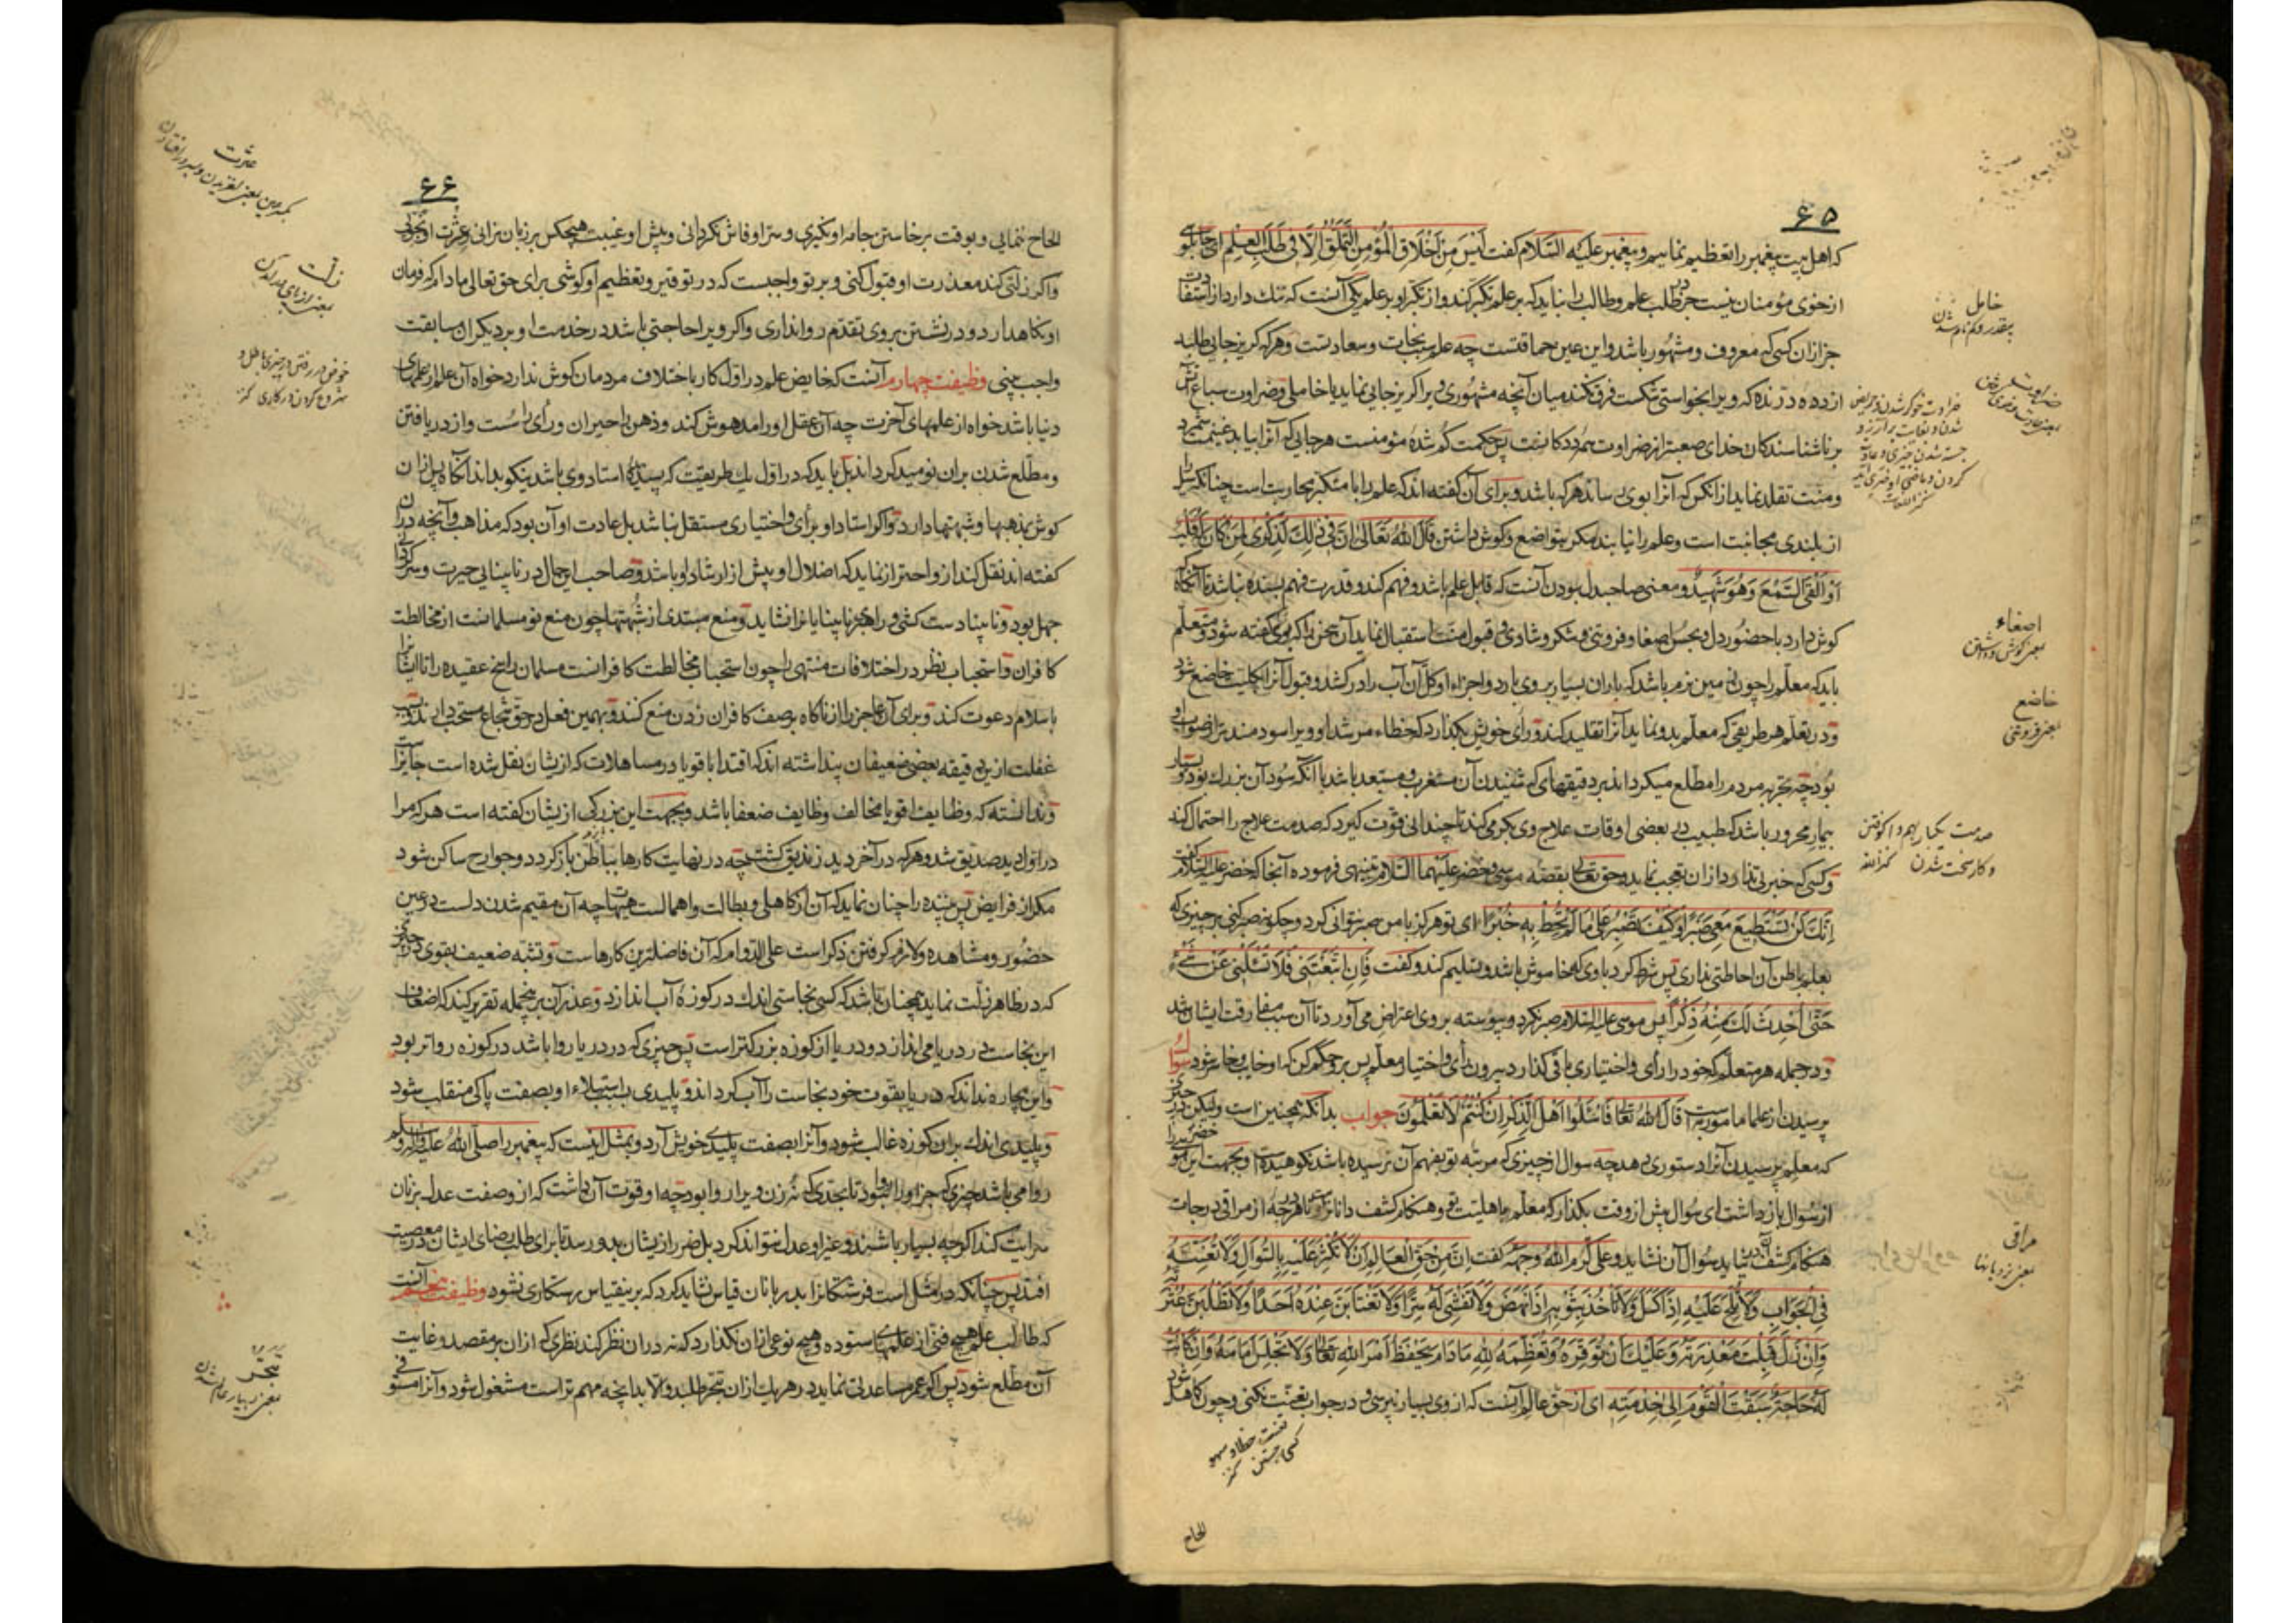 ۶۵
که اهل بیت پیغمبر را تعظیم نماییم و پیغمبر علیه السلام گفت لیس من اخلاق المؤمن التملق الا فی طلب العلم ای چاپلوسی
از خوی مؤمنان نیست جز در طلب علم و طالب را نباید که بر علم تکبر کند و از تکبر او بر علم یکی آنست که ننک دارد از استفادت
جز ازان کسی که معروف و مشهور باشد و این عین حماقتست چه علم سبب نجات و سعادتست و هرکه کریزجایی طلبد
از دده درنده که ویرا بخواستی شکست فرق نکند میان آنچه مشهوری ویرا کریزجایی نماید یا خاملی و ضراوت سباع آتش
بر ناشناسندکان خدای صعبتر از ضراوت همه ددکانست پس حکمت کم شدهٔ مؤمنست هرجایی که آنرا بیابد غنیمت شمرد
و منت تقلد نماید از انکس که آنرا بوی رساند هرکه باشد و برای آن کفته اند که علم را با متکبر محاربت است چنانکه سیل را
از بلندی مجانبت است و علم را نیابند مکر بتواضع و کوش داشتن قال الله تعالی ان فی ذلک لذکری لمن کان له قلب
او القی السمع و هو شهید و معنی صاحبدل بودن آنست که قابل علم باشد و فهم کند و قدرت فهم بسنده نباشد تا آنکاه
کوش دارد با حضور دل و بحسن اصغا و فروتنی و شکر و شادی و قبول منت استقبال نماید آن سخن را که بوی کفته شود و متعلم
باید که معلم را چون زمین نرم باشد که باران بسیار بر وی بارد و اجزاء او کل آن آب را درکشد و قبول آنرا بکلیت خاضع شود
و در تعلم هر طریقی که معلم بدو نماید آنرا تقلید کند و رأی خویش بکذارد که خطاء مرشد او ویرا سودمندتر از صواب او
بود چه تجربه مردم را مطلع میکرداند بر دقیقهای که شنیدن آن مستغرب و مستبعد باشد با آنکه سود آن بزرک بود و بسیار
بیمار محرور باشد که طبیب در بعضی اوقات علاج وی بکرمی کند تا چندانی قوت کیرد که صدمت علاج را احتمال کند
و کسی که خبرتی ندارد از ان تعجب نماید و حق تعالی بقصهٔ موسی و خضر علیهما السلام تنبیهی فرموده آنجا که خضر علیه السلام گفت
انک لن تستطیع معی صبرا و کیف تصبر علی ما لم تحط به خبرا ای تو هرکز با من صبر نتوانی کرد و چکونه صبر کنی بر چیزی که
بعلم باطن آن احاطتی نداری پس شرط کرد با وی که خاموش باشد و تسلیم کند و گفت فان اتبعتنی فلا تسئلنی عن شیء
حتی احدث لک منه ذکرا پس موسی علیه السلام صبر نکرد و پیوسته بر وی اعتراض می آورد تا آن سبب مفارقت ایشان شد
و در جمله هر متعلم که خود را رأی و اختیاری باقی کذارد بیرون رأی و اختیار معلم پس برو حکم کن که او خایب و خاسر شود سؤال
پرسیدن از علما مامور به است قال الله تعالی فاسئلوا اهل الذکر ان کنتم لا تعلمون جواب بدانکه همچنین است ولیکن در چیزی
که معلم پرسیدن آنرا دستوری دهد چه سوال از چیزی که مرتبه تو بفهم آن نرسیده باشد نکوهیده است و بجهت این خضر موسی را
از سؤال بازداشت ای سؤال پیش از وقت بکذار که معلم باهلیت تو و هنکام کشف داناتر است و تا هر درجه از مراقی درجات
هنکام کشف آن در نیاید سؤال آن نشاید و علی کرم الله وجهه گفت ان من حق العالم ان لا تکثر علیه بالسؤال ولا تعنته
فی الجواب ولا تلح علیه اذا کسل ولا تأخذ بثوبه اذا نهض ولا تفشی له سرا ولا تغتابن عنده احدا ولا تطلبن عثرته
وان زل قبلت معذرته وعلیک ان توقره وتعظمه لله ما دام یحفظ امر الله تعالی ولا تجلس امامه وان کانت
له حاجة سبقت القوم الی خدمته ای از حق عالم آنست که از وی بسیار نپرسی و در جواب تعنت نکنی و چون کاهل شود
الحاح
خامل
اصغاء
خاضع
یعنی فروتنی
صدمت یکبار بهم واکوفتن
و کار سخت شدن کنز اللغه
مراقی
یعنی نردبانها
۶۶
الحاح ننمایی و بوقت برخاستن جامه او نکیری و سر او فاش نکردانی و پیش او غیبت هیچکس بر زبان نرانی و عثرت او نجویی
واکر زلتی کند معذرت او قبول کنی و بر تو واجبست که در توقیر و تعظیم او کوشی برای حق تعالی مادام که فرمان
او نکاهدارد و در نشستن بر وی تقدم روا نداری واکر ویرا حاجتی باشد در خدمت او بر دیکران مسابقت
واجب بینی وظیفت چهارم آنست که خایض علم در اول کار باختلاف مردمان کوش ندارد خواه آن علم از علمهای
دنیا باشد خواه از علمهای آخرت چه آن عقل او را مدهوش کند و ذهن را حیران و رأی را سست و از دریافتن
و مطلع شدن بران نومید کرداند بل باید که در اول یک طریقت که پسندیدهٔ استاد وی باشد نیکو بداند آنکاه پس ازان
کوش بمذهبها و شبهتها دارد واکر استاد او برأی و اختیاری مستقل نباشد بل عادت او آن بود که مذاهب و آنچه دران
کفته اند نقل کند ازو احتراز نماید که اضلال او بیش از ارشاد او باشد و صاحب این حال در نابینایی حیرت و سرکردانی
جهل بود و نابینا دست کشی و راهبری نابینایان را نشاید و منع مبتدی از شبهتها چون منع نومسلمانست از مخالطت
کافران و استحباب نظر در اختلافات منتهی را چون استحباب مخالطت کافرانست مسلمان راسخ عقیده را تا ایشانرا
باسلام دعوت کند و برای آن عاجز را از ناکاه بر صف کافران زدن منع کنند و همین فعل در حق شجاع مستحب دارند و بسبب
غفلت ازین دقیقه بعضی ضعیفان پنداشته اند که اقتدا باقویا در مساهلات که ازیشان نقل شده است جایز است
و ندانسته که وظایف اقویا مخالف وظایف ضعفا باشد و بجهت این بزرکی ازیشان کفته است هرکه مرا
در اول دید صدیق شد و هرکه در آخر دید زندیق کشت چه در نهایت کارها بباطن بازکردد و جوارح ساکن شود
مکر از فرایض پس بیننده را چنان نماید که آن از کاهلی و بطالت و اهمالست هیهات چه آن مقیم شدن دلست در عین
حضور و مشاهده و لازم کرفتن ذکر است علی الدوام که آن فاضلترین کارهاست و تشبه ضعیف بقوی در چیزی
که در ظاهر زلت نماید همچنان باشد که کسی نجاستی اندک در کوزهٔ آب اندازد و عذر آن برین جمله تقریر کند که اضعاف
این نجاست در دریا می اندازند و دریا از کوزه بزرکتر است پس چیزی که در دریا روا باشد در کوزه رواتر بود
و این بیچاره نداند که دریا بقوت خود نجاست را آب کرداند و پلیدی باستیلاء او بصفت پاکی منقلب شود
و پلیدی اندک بران کوزه غالب شود و آنرا بصفت پلیدی خویش آرد و بمثل اینست که پیغمبر را صلی الله علیه وآله وسلم
روا می باشد چیزی که جز او را روا نبود تا بحدی که نه زن ویرا روا بود چه او قوت آن داشت که ازو صفت عدل بزنان
سرایت کند اکرچه بسیار باشند و غیر او عدل نتواند کرد بل ضرر ازیشان بدو رسد تا برای طلب رضای ایشان در معصیت
افتد پس چنانکه در مثل است فرشتکانرا بدربانان قیاس نشاید کرد که برین قیاس رستکاری نشود وظیفت پنجم آنست
که طالب علم هیچ فنی از علمهای ستوده و هیچ نوعی ازان نکذارد که نه دران نظر کند نظری که ازان بر مقصد و غایت
آن مطلع شود پس اکر عمر مساعدتی نماید در هر یک ازان تبحر طلبد والا بدانچه مهم تر است مشغول شود و آنرا مستوفی
عثرت
زلت
خوض در رفتن در چیزی باطل و
شروع کردن در کاری کنز
تبحر